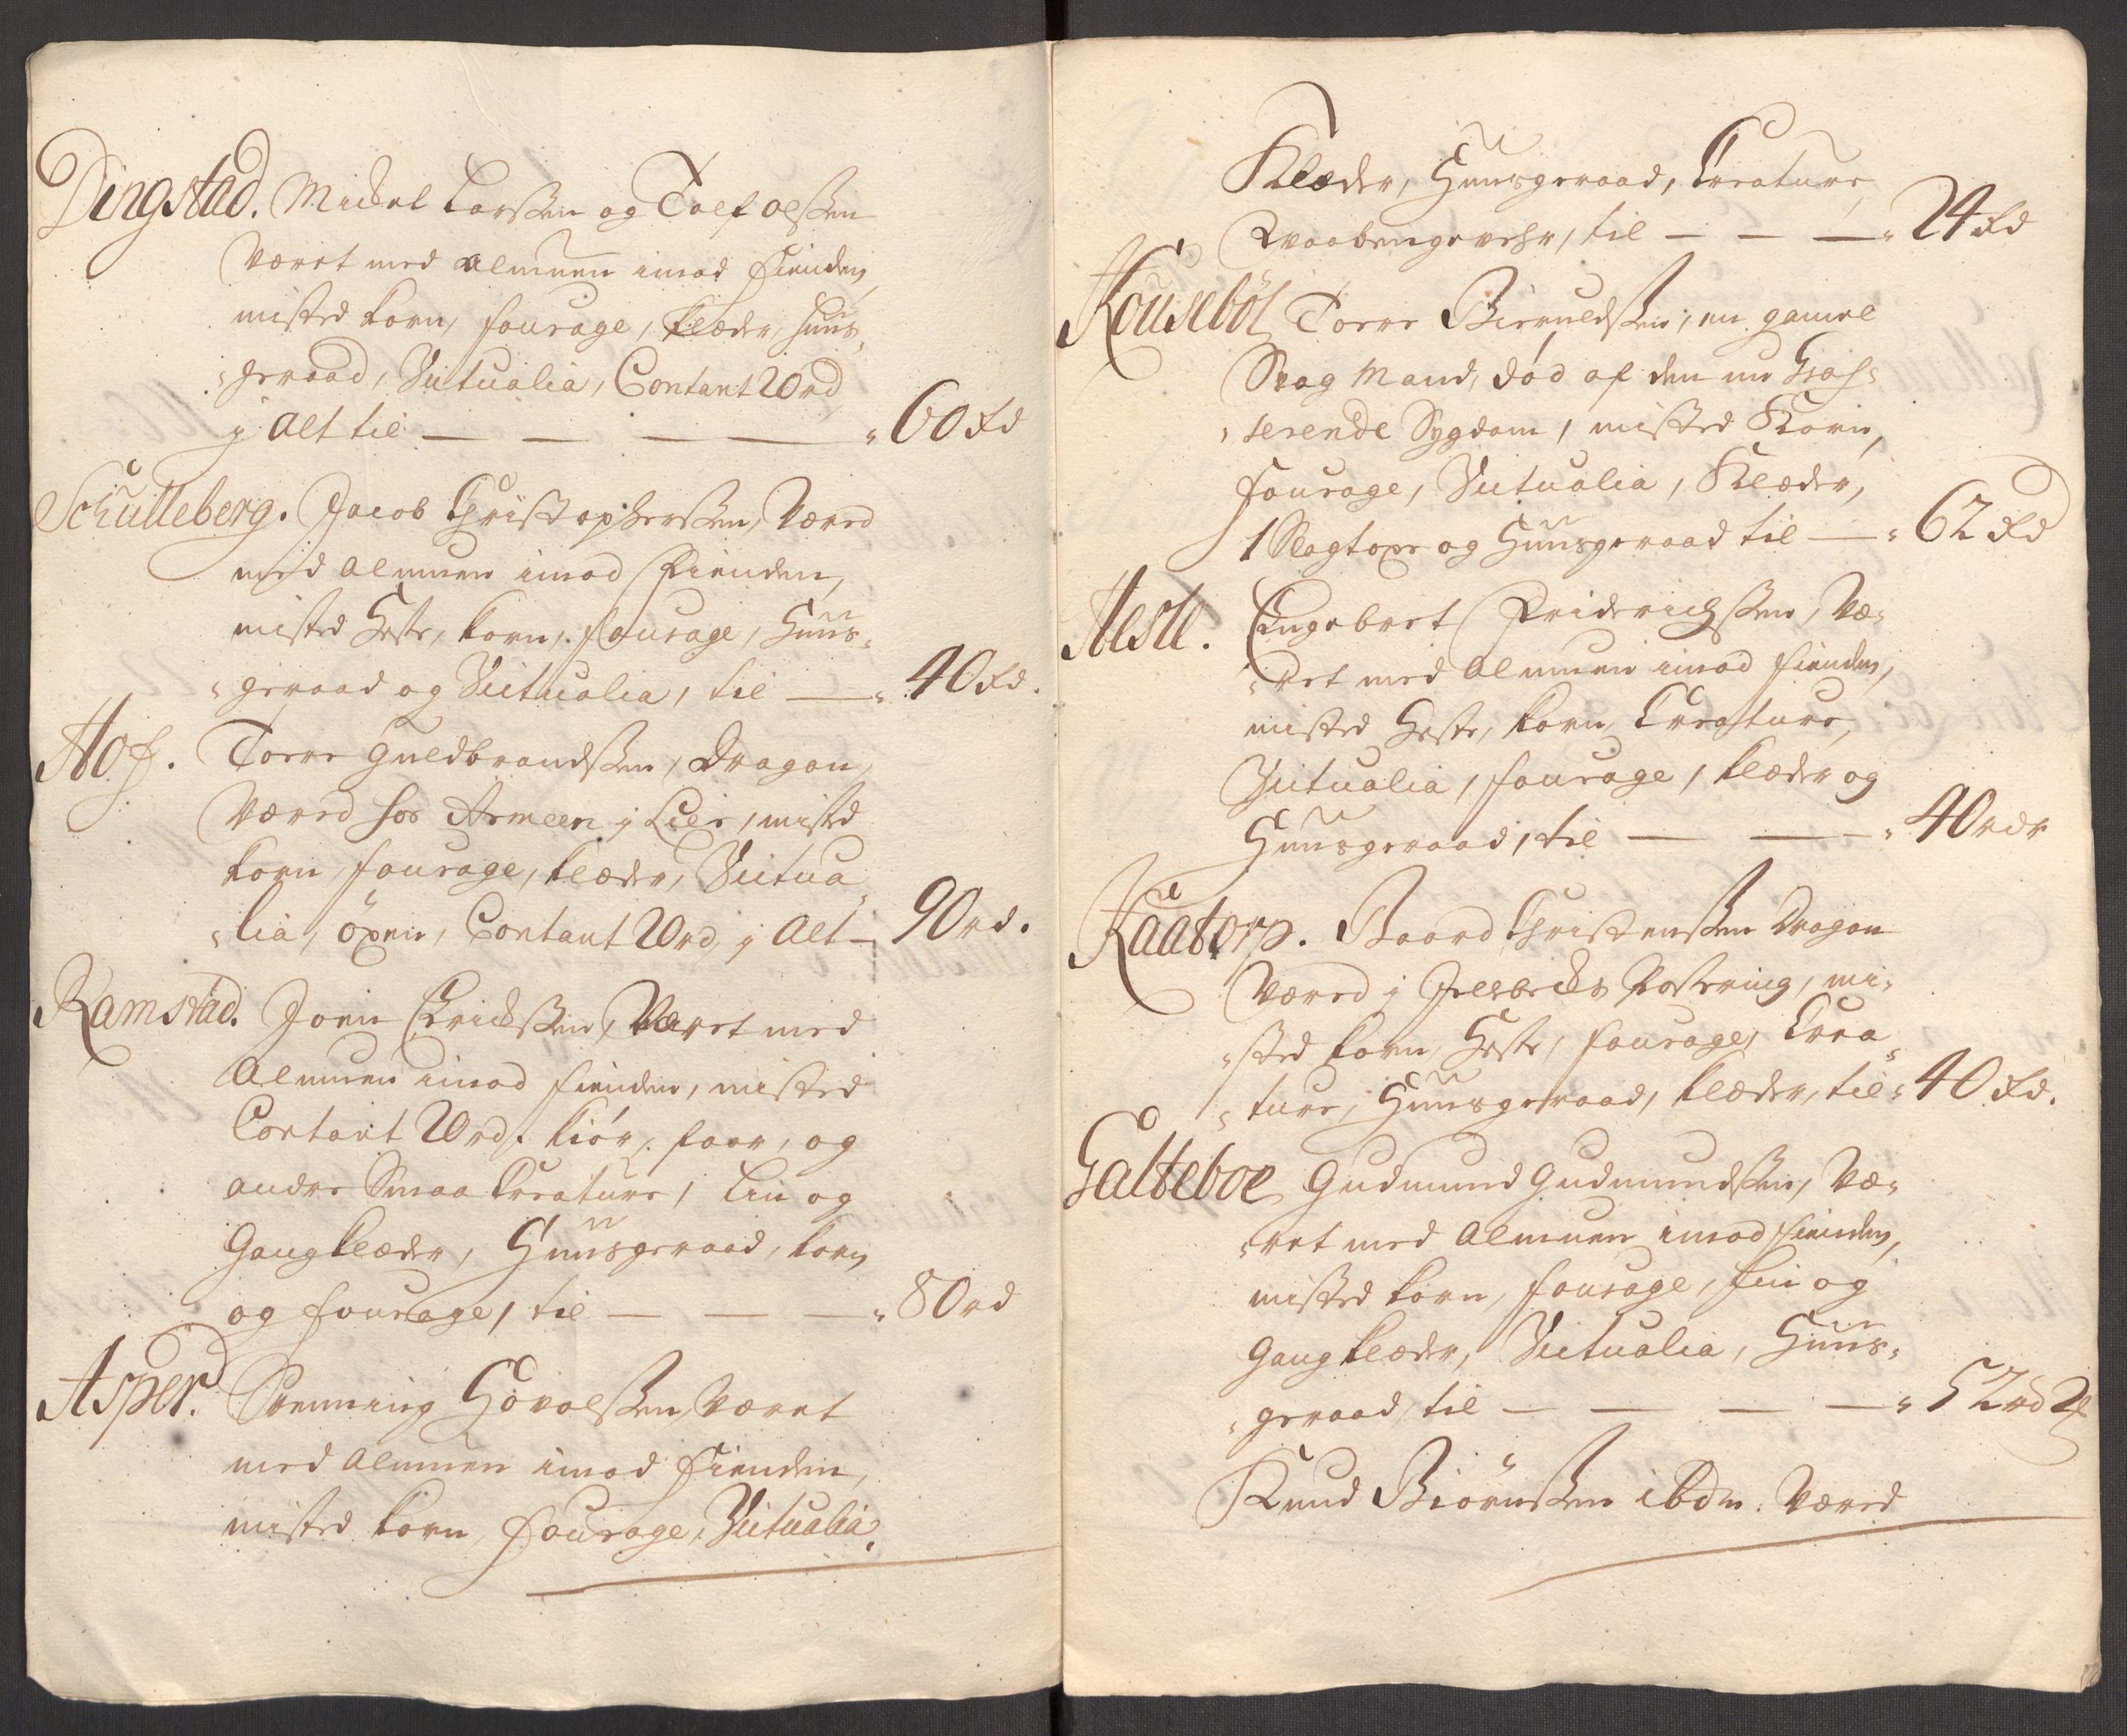 Dingstad. Michel Larssen og Tolf olssen
Været med almuen imod fienden,
misted korn, fourage, klæder, huus-
geraad, Victualia, Contant 20rd
j alt til — — — — 60 rd
Schulleberg. Jacob Christophersen, Været
med almuen imod Fienden,
misted Heste, korn, fourage, Huus-
geraad og Victualia, til — 40 rd.
Hof. Torre Guldbrandssen, Dragon,
Været hos Armeen j Lier, misted
korn, fourage, klæder, Victua
lia, öxen, Contant 20rd, j alt — 90 rd.
Ramstad. Joen Erichssen, Været med
Almuen imod fienden, misted
Contant 20rd. kiör, faar, og
andre Smaa Creature, Lin og
Gangklæder, Huusgeraad, korn
og fourage, til — — — 80 rd
Asper. Svenning Hovalssen, Været
med almuen imod fienden,
misted korn, fourage, Victualia,
Klæder, Huusgeraad, Creature,
Waabengevehr, til — — — 24 rd
Kouseböl Torre Biørnldssen, en gamel
Svag Mand, död af den nu Gras-
serende Sygdom, misted Korn,
fourage, Victualia, Klæder,
1 Slagtoxe og Huusgeraad til — 62 rd
Aeste. Engebret Friderichssen, Væ-
ret med Almuen imod fienden,
misted Heste, korn, Creature,
Victualia, fourage, klæder og
Huusgeraad, til — — 40 rdr
Kaatorp. Baard Christenssen Dragon
Været j Postering, mi-
sted korn, Heste, fourage, Crea
ture, Huusgeraad, klæder, til 40 rd.
Galteboe Gudmund Gudmundssen, Væ-
ret med Almuen imod fienden,
misted korn, fourage, Lin og
Gangklæder, Victualia, Huus-
geraad, til — — — — 52 rd 2
Knud Biörnssen ibdm. Været